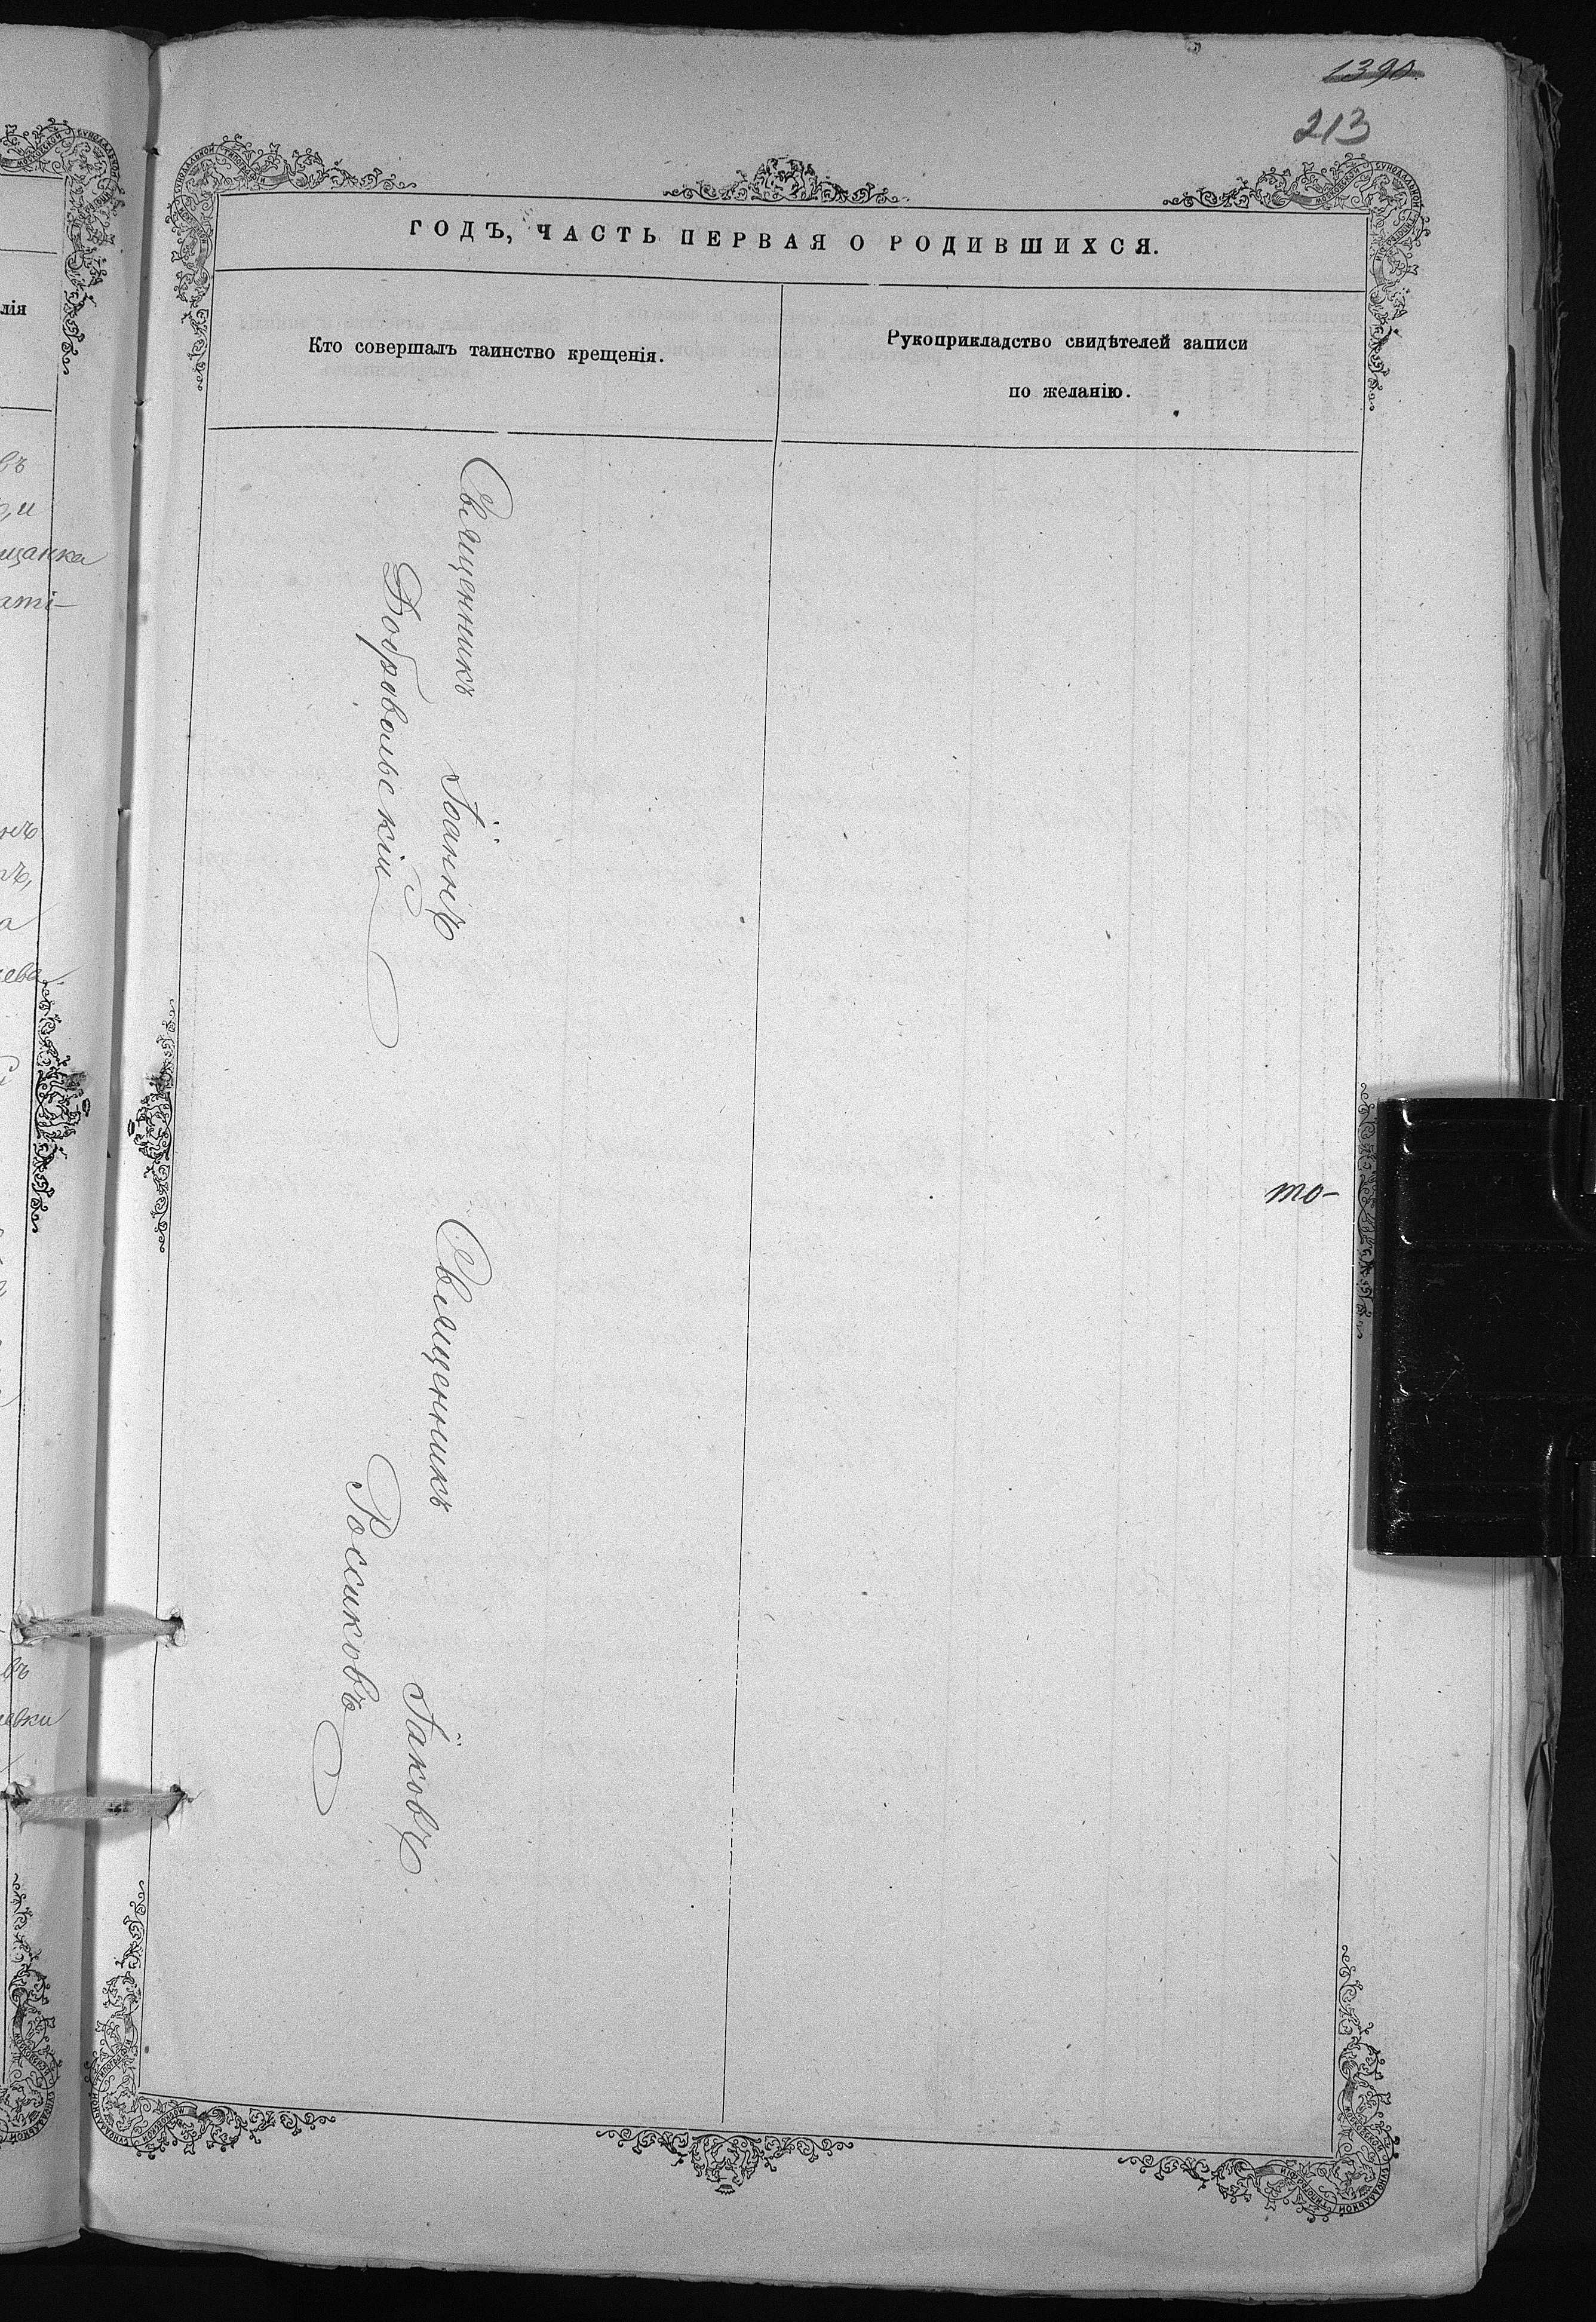 213
ГОДЪ, ЧАСТЬ ПЕРВАЯ О РОДИВШИХСЯ.
Кто совершалъ таинство крещенія.
Рукоприкладство свидѣтелей записи
по желанію.
Священникъ Іоаннъ
Добровольскій
Священникъ Іаковъ
Россиковъ
то-
лія
въ
щанка